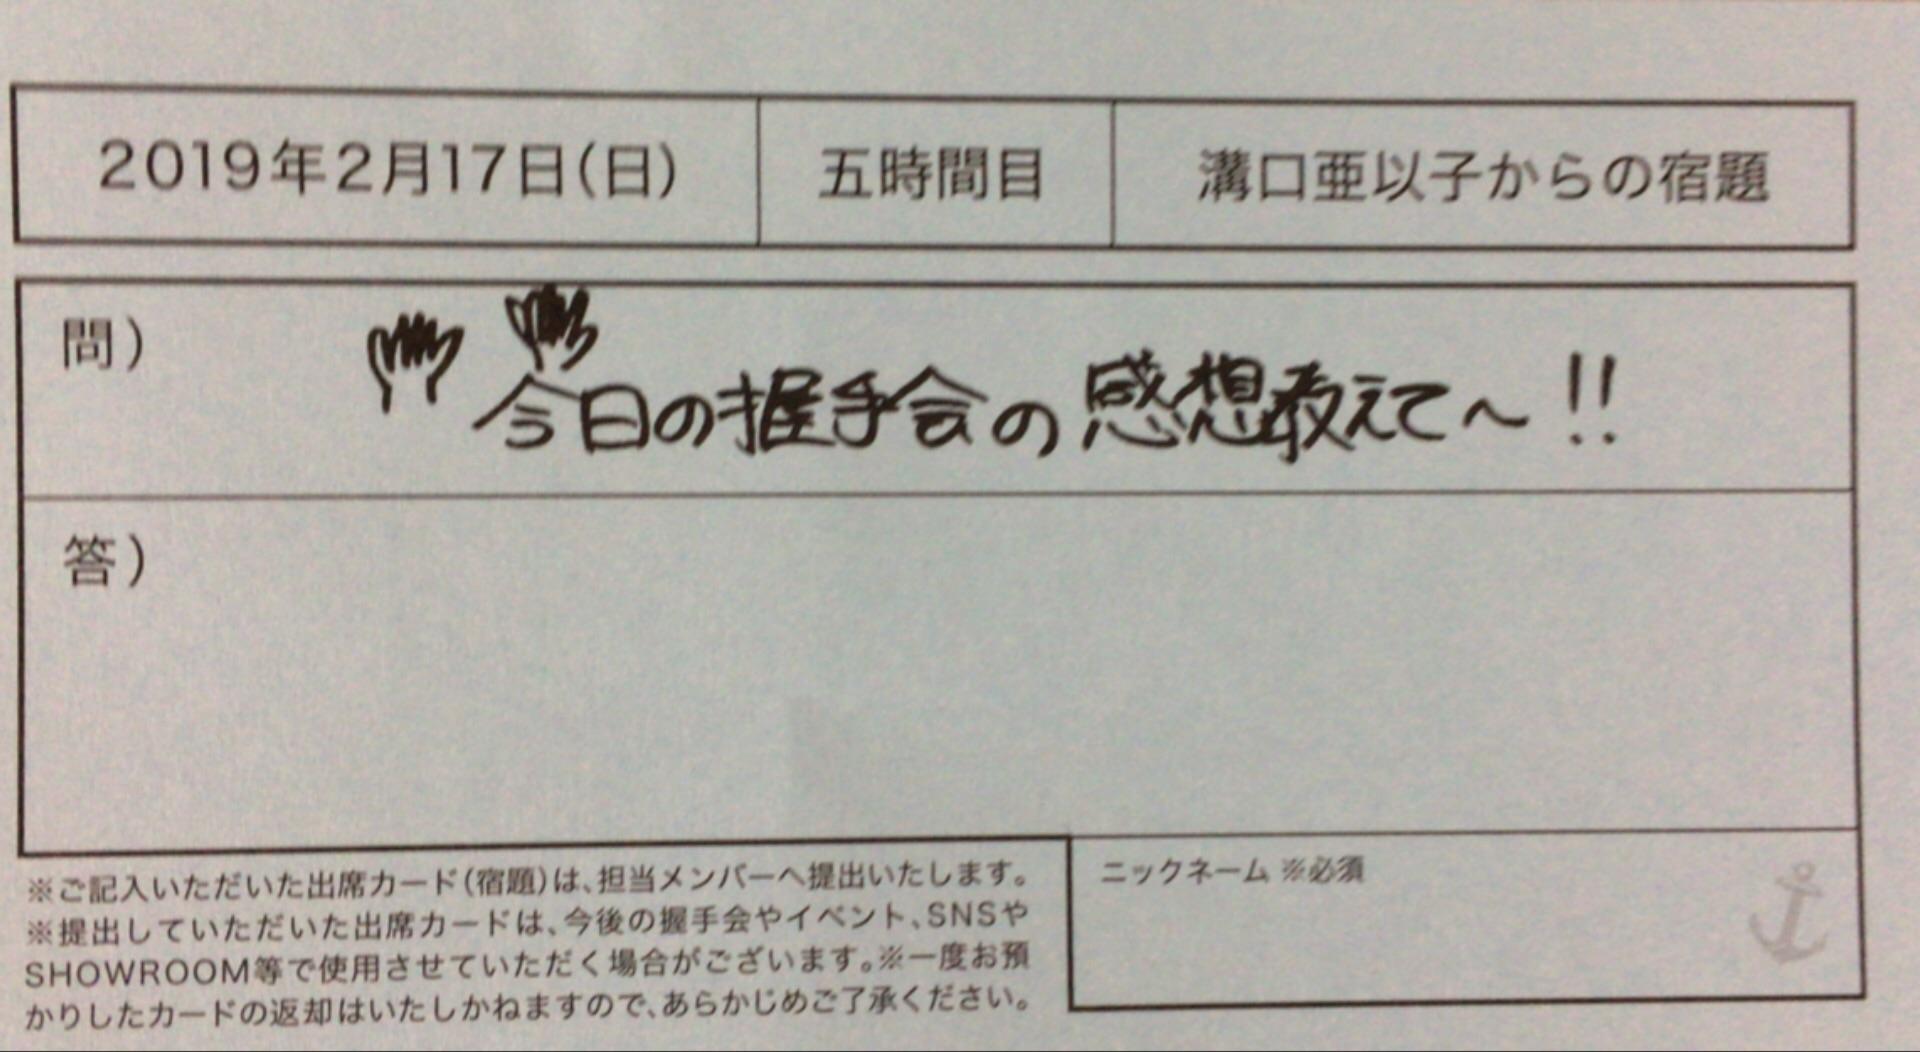 2019年2月17日(日)
五時間目
溝口亜以子からの宿題
問)
今日の握手会の感想教えて〜!!
答)
※ご記入いただいた出席カード(宿題)は、担当メンバーへ提出いたします。
※提出していただいた出席カードは、今後の握手会やイベント、SNSや
SHOWROOM等で使用させていただく場合がございます。※一度お預
かりしたカードの返却はいたしかねますので、あらかじめご了承ください。
ニックネーム ※必須